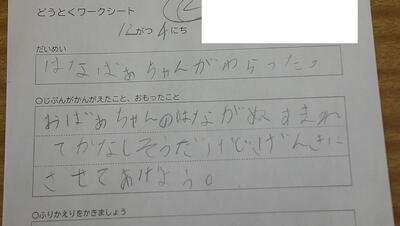 どうとくワークシート
12がつ4にち
だいめい
はなばあちゃんがわらった。
○じぶんがかんがえたこと、おもったこと
おばあちゃんのはながぬすまれ
てかなしそうだけどげんきに
させてあげよう。
○ふりかえりをかきましょう